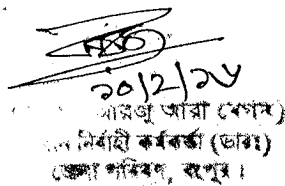 ২০/২/১৮
আরা বেগম)
নির্বাহী কর্মকর্তা (ভারঃ)
জেলা পরিষদ, রংপুর।